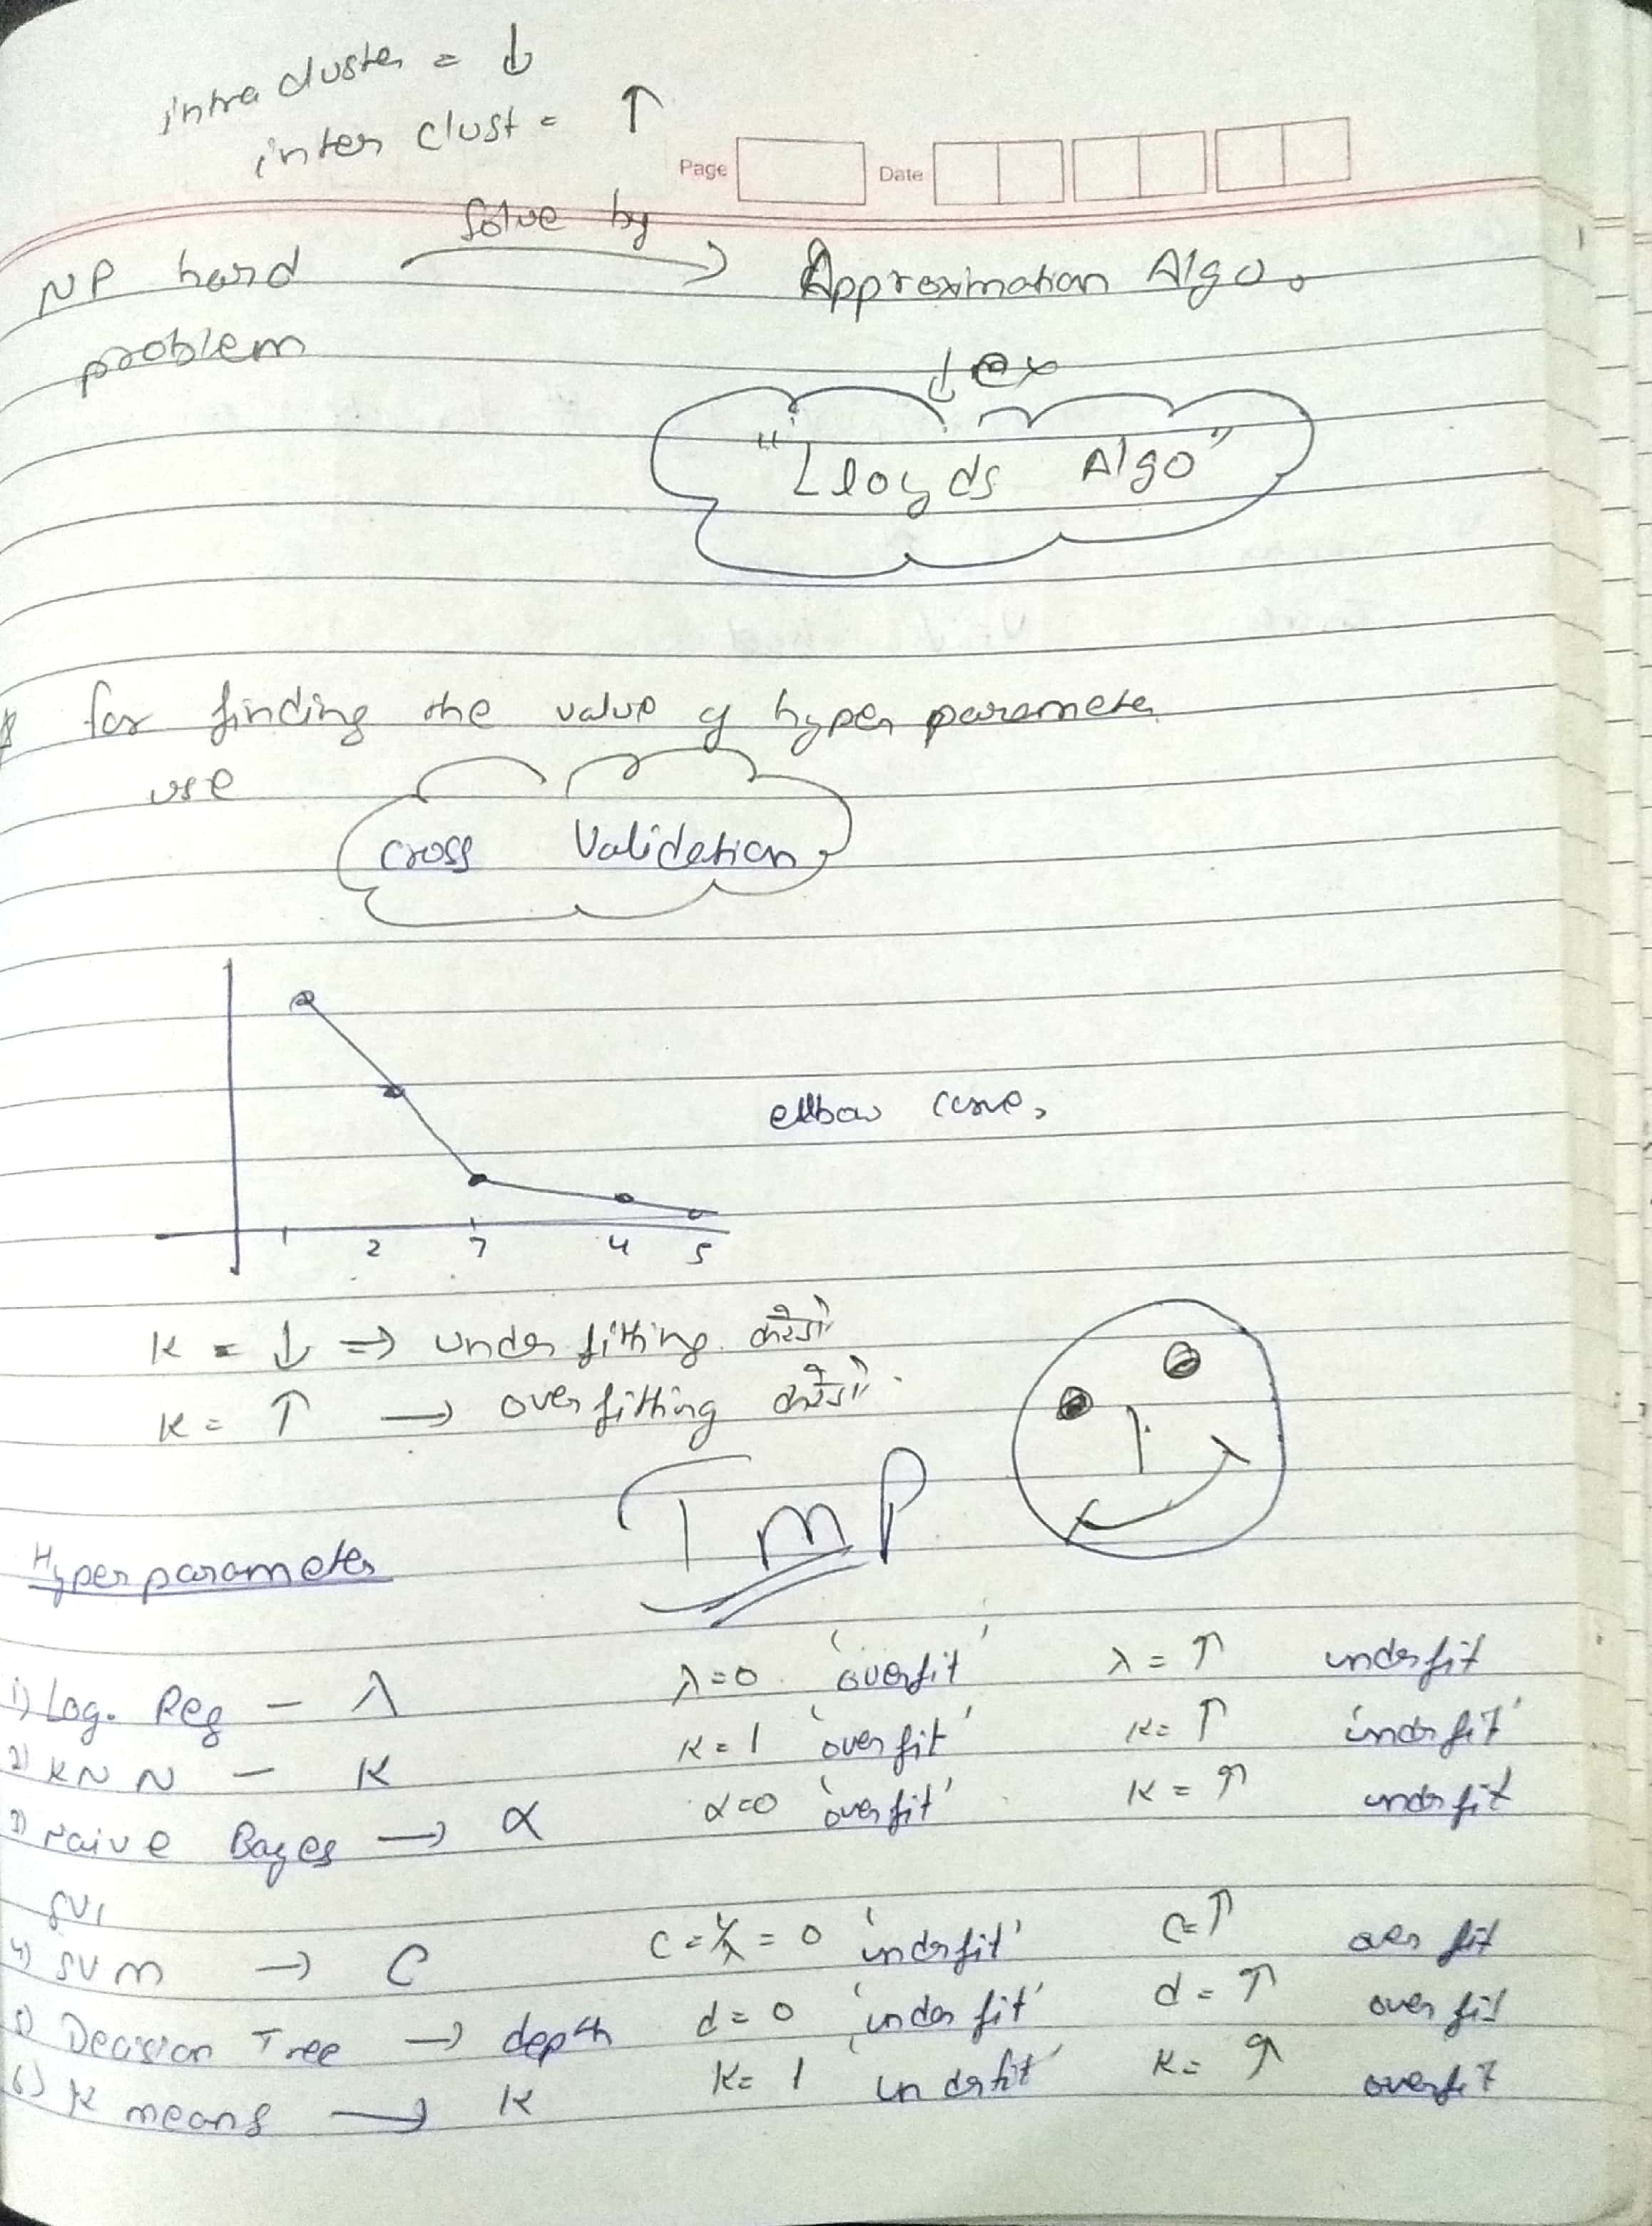 intra cluster = ↓
inter clust = ↑
Page Date
NP hard solve by → Approximation Algo.
problem
↓ ex
"Lloyds Algo"
for finding the value of hyper parameter
use
cross Validation
elbow curve,
2 4 5
K = ↓ ⇒ under fitting
K = ↑ → over fitting
Imp
Hyper parameter
1) Log. Reg – λ λ=0 'overfit' λ = ↑ underfit
2) KNN – K K=1 'over fit' K= ↑ 'undrfit'
3) naive Bayes → α α=0 'over fit' K = ↑ undrfit
SV
4) SVM → C C = 1/λ = 0 'undrfit' C=↑ over fit
5) Decision Tree → depth d = 0 'under fit' d = ↑ over fit
6) K means → K K= 1 undrfit' K= ↑ overfit